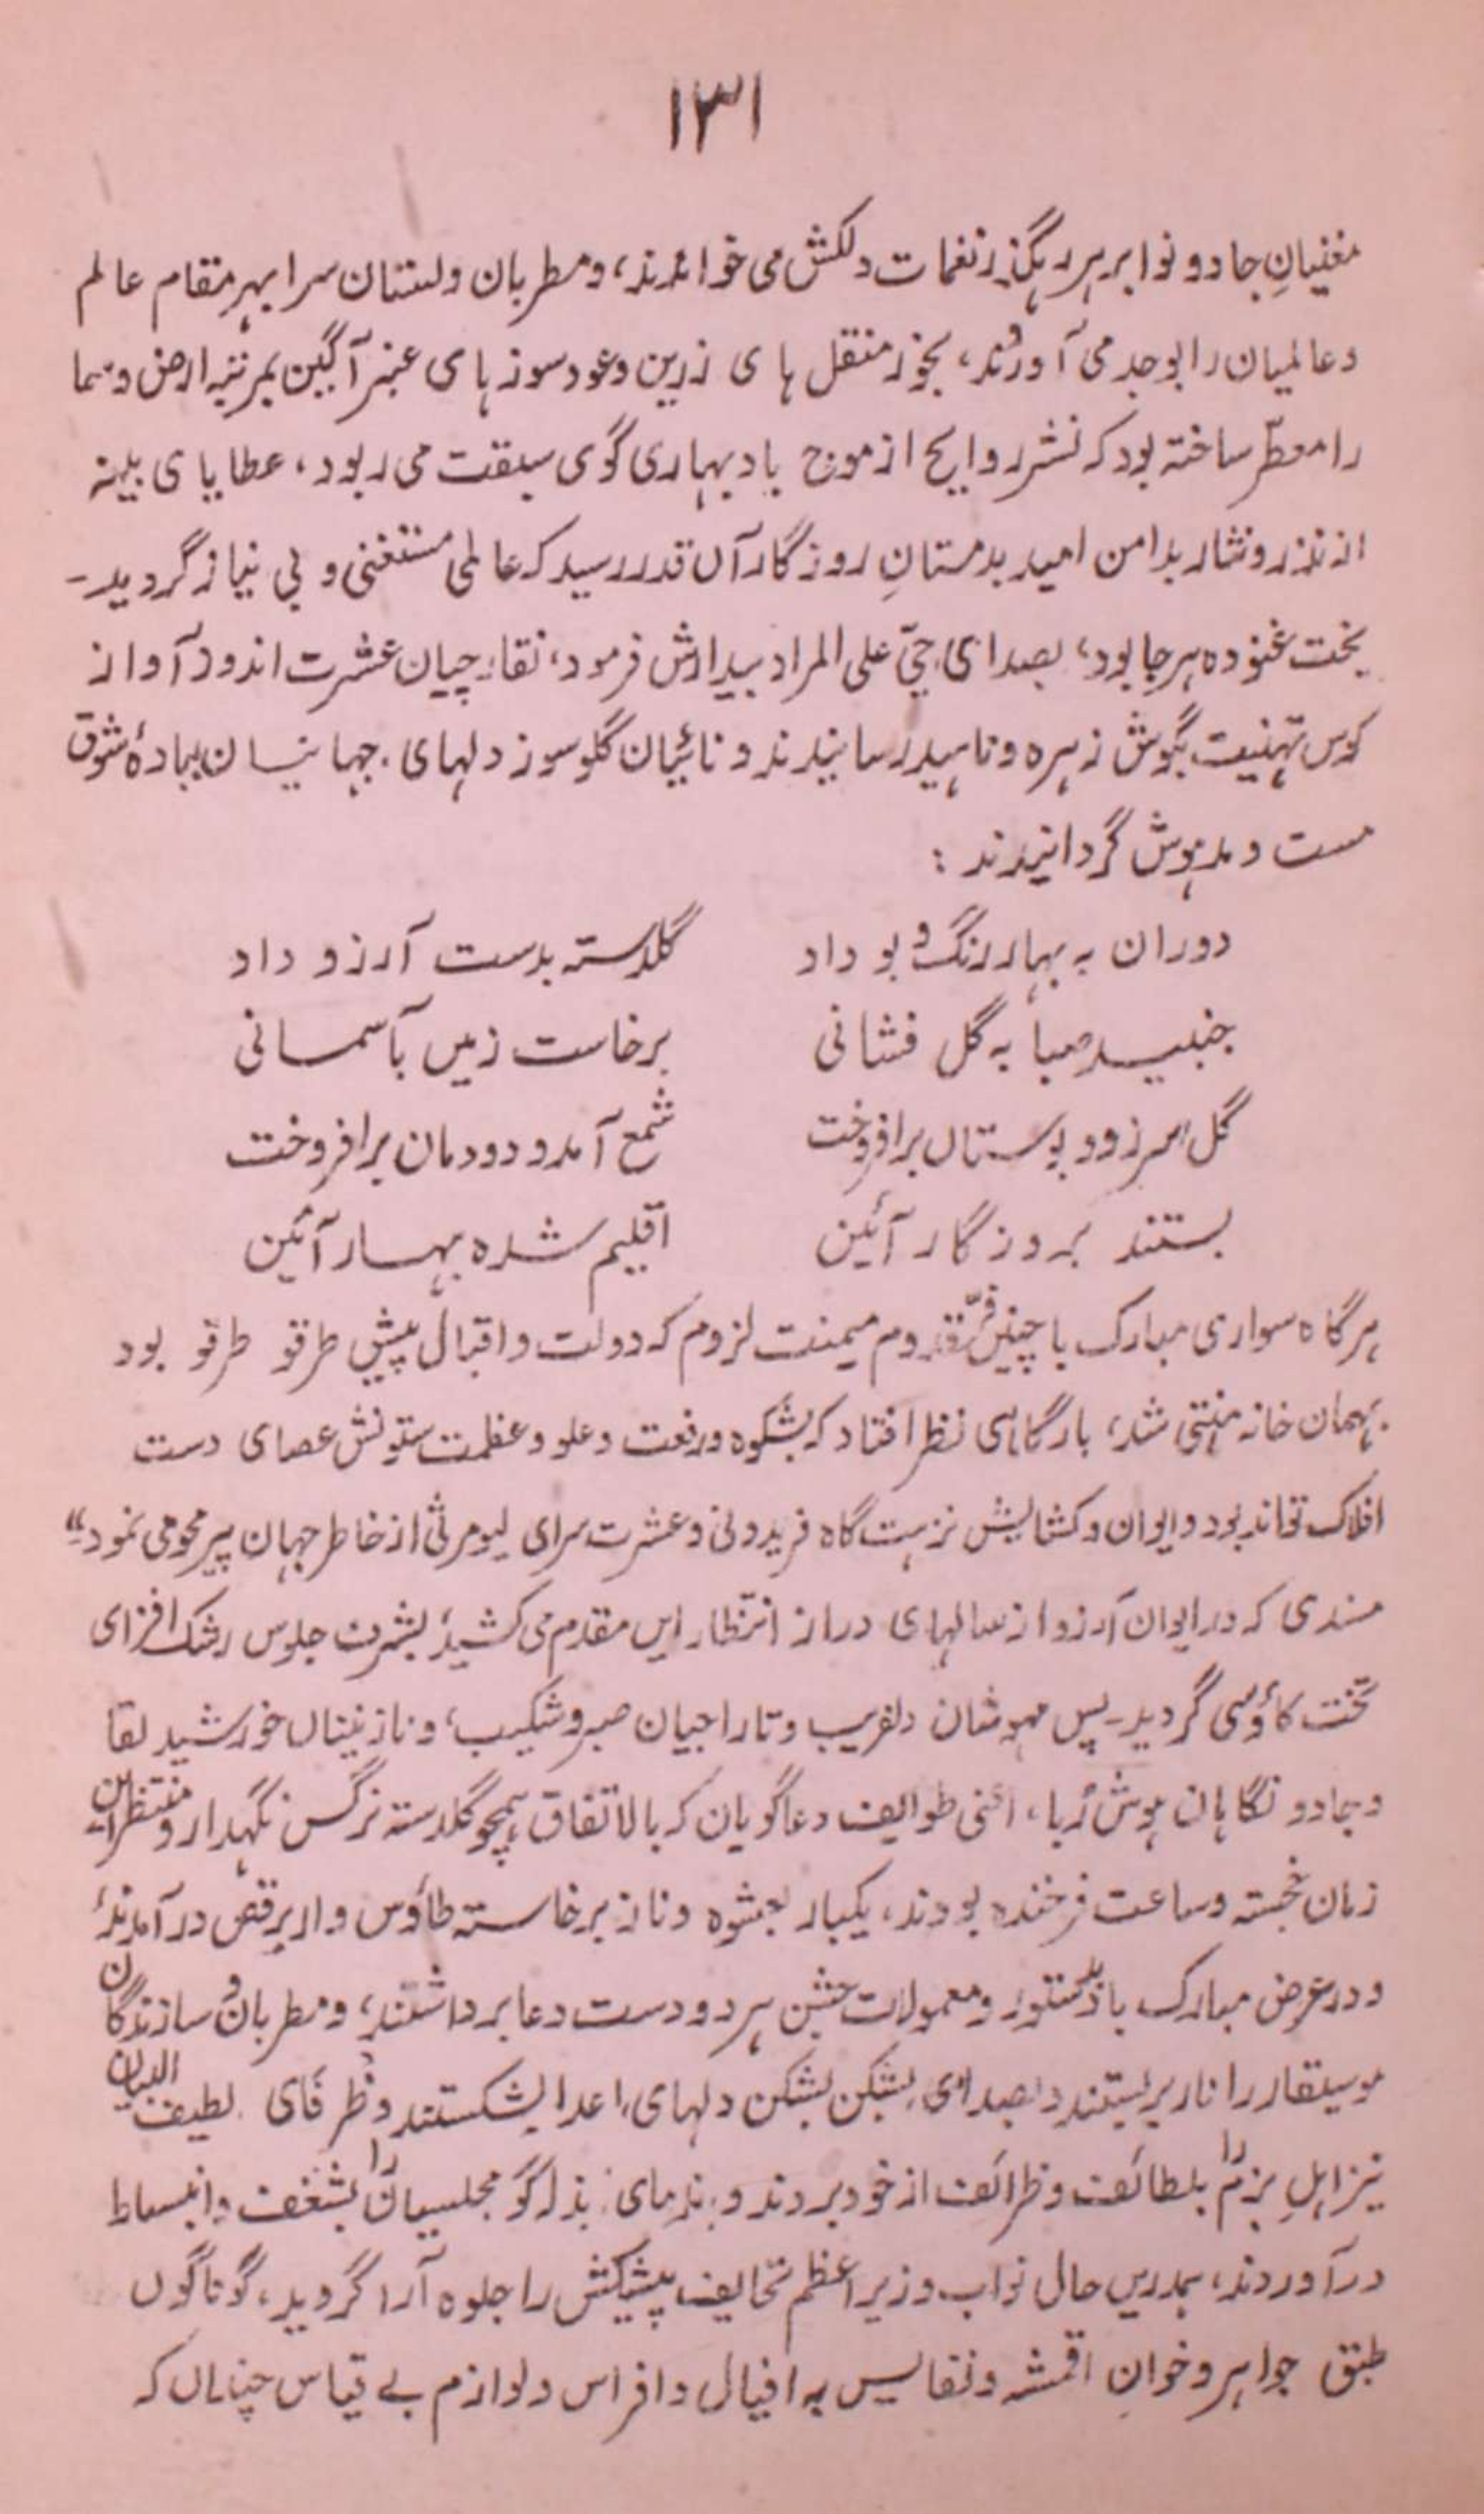 ۱۳۱
مغنیانِ جادو نوا بر ہر رہگذر نغمات دلکش می خواندند، و مطربان دلستان سرا بہر مقام عالم
و عالمیان را بوجد می آوردند، بخور منقل ہا ی زرین و عود سوز ہا ی عنبر آگین بمرتبہ ارض و سما
را معطّر ساختہ بود کہ نشر روایح از موج باد بہاری گوی سبقت می ربود، عطایا ی بلیہ
از نذر و نثار بدامن امید بدمستانِ روزگار آں قدر رسید کہ عالمی مستغنی و بی نیاز گردید۔
بخت غنودہ ہر جا بود، بصدا ی حیّ علی المراد بیدارش فرمود، نقارچیان عشرت اندوز آواز
کوس تہنیت بگوش زہرہ و ناہید رسانیدند و نائیان گلو سوز دلہای جہانیان ببادۂ شوق
مست و مدہوش گردانیدند :
دوران بہ بہار رنگ و بو داد گلدستہ بدست آرزو داد
جنبید صبا بہ گل فشانی برخاست زمیں بآسمانی
گل سر زد و بوستاں برافروخت شمع آمد و دودمان برافروخت
بستند بروزگار آئین اقلیم شدہ بہار آئین
ہر گاہ سواری مبارک با چنیں فرّ قدوم میمنت لزوم کہ دولت و اقبال پیش طرقو طرقو بود
بہمان خانہ منتہی شد، بارگاہی نظر افتاد کہ بشکوہ و رفعت و علو و عظمت ستونش عصای دست
افلاک تواند بود و ایوان و کشایش نزہت گاہ فریدونی و عشرت سرای کیومرثی از خاطر جہان پیر محو می نمود"
مسندی کہ در ایوان آرزو از سالہای دراز انتظار ایں مقدم می کشید، بشرف جلوس رشک افزای
تخت کاؤسی گردید۔ پس مہوشان دلفریب و تاراجیان صبر و شکیب، و نازنیناں خورشید لقا
و جادو نگاہان ہوش رُبا، اعنی طوایف دعاگویان کہ بالاتفاق ہمچو گلدستہ نرگس نگہدار و منتظران
زمان خجستہ و ساعت فرخندہ بودند، یکبار بعشوہ و ناز برخاستہ طاؤس وار برقص در آمدند
و در عرض مبارک باد بدستور و معمولات جشن ہر دو دست دعا برداشتند، و مطربان و سازندگان
موسیقار را تار بربستند و بصدای بشکن بشکن دلہای اعدا بشکستند و ظرفای لطیف البیان
نیز اہلِ بزم را بلطائف و ظرائف از خود بردند و ندمای بذلہ گو مجلسیان را بشغف و انبساط
در آوردند، ہمدریں حال نواب وزیر اعظم تحایف پیشکش را جلوہ آرا گردید، گوناگوں
طبق جواہر و خوانِ اقمشہ و نفایس بہ افیال و افراس و لوازم بے قیاس چناں کہ